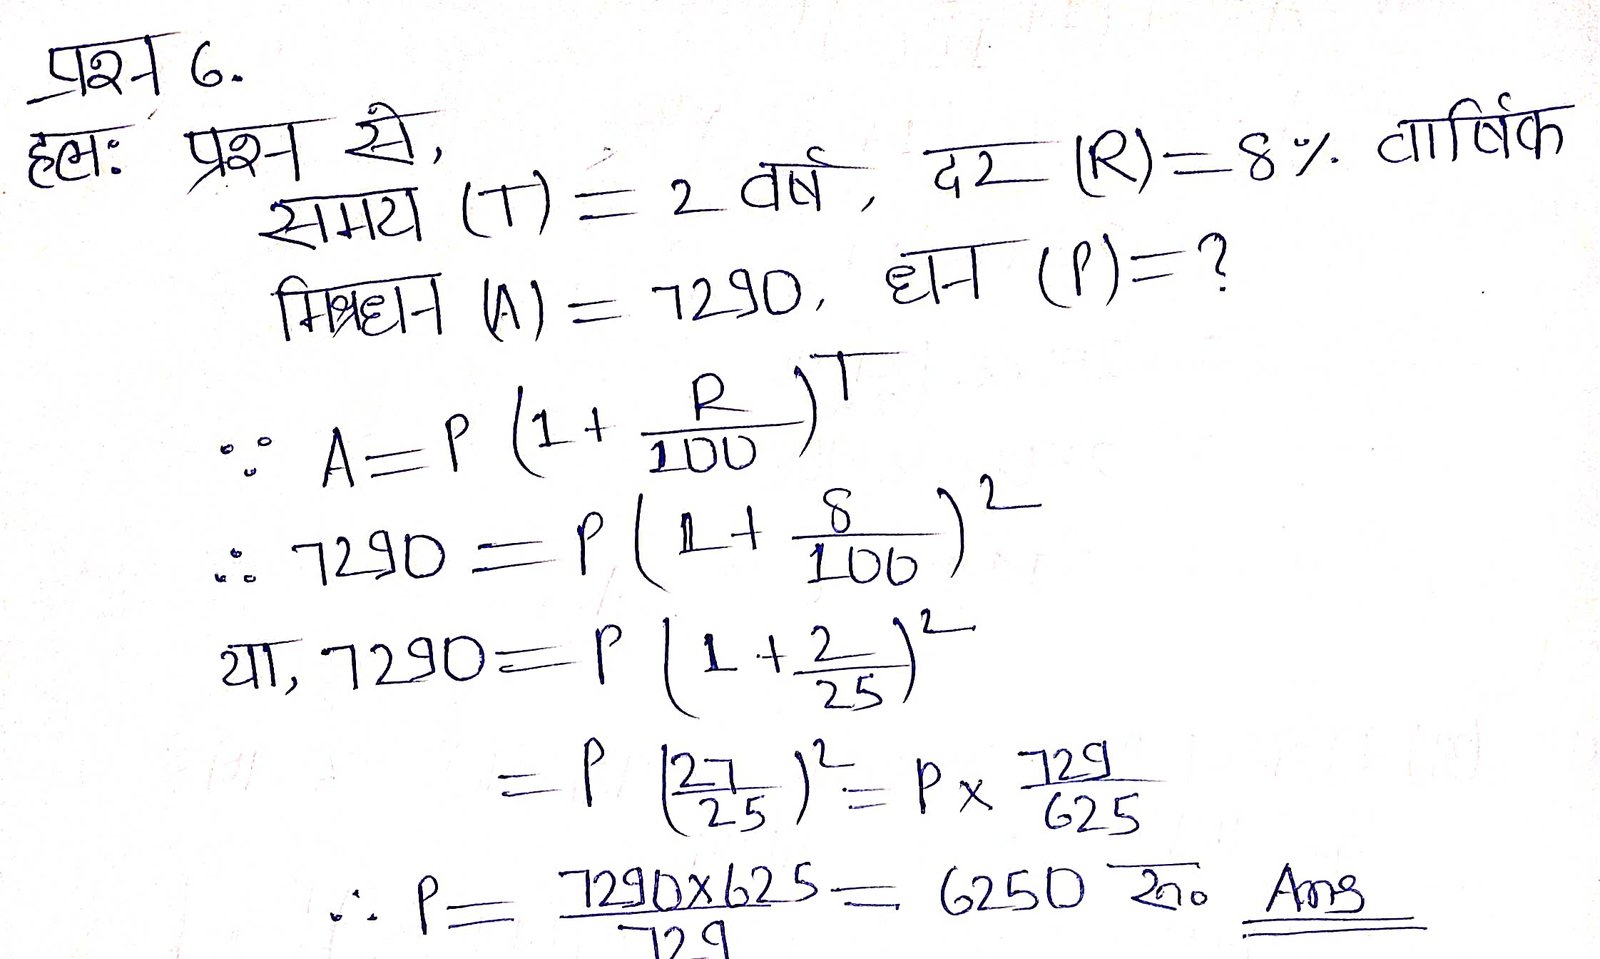 प्रश्न 6.
हलः प्रश्न से,
समय (T) = 2 वर्ष, दर (R) = 8% वार्षिक
मिश्रधन (A) = 7290, धन (P) = ?
∵ A = P (1 + R/100)^T
∴ 7290 = P (1 + 8/100)^2
या, 7290 = P (1 + 2/25)^2
= P (27/25)^2 = P × 729/625
∴ P = 7290×625/729 = 6250 रु० Ans